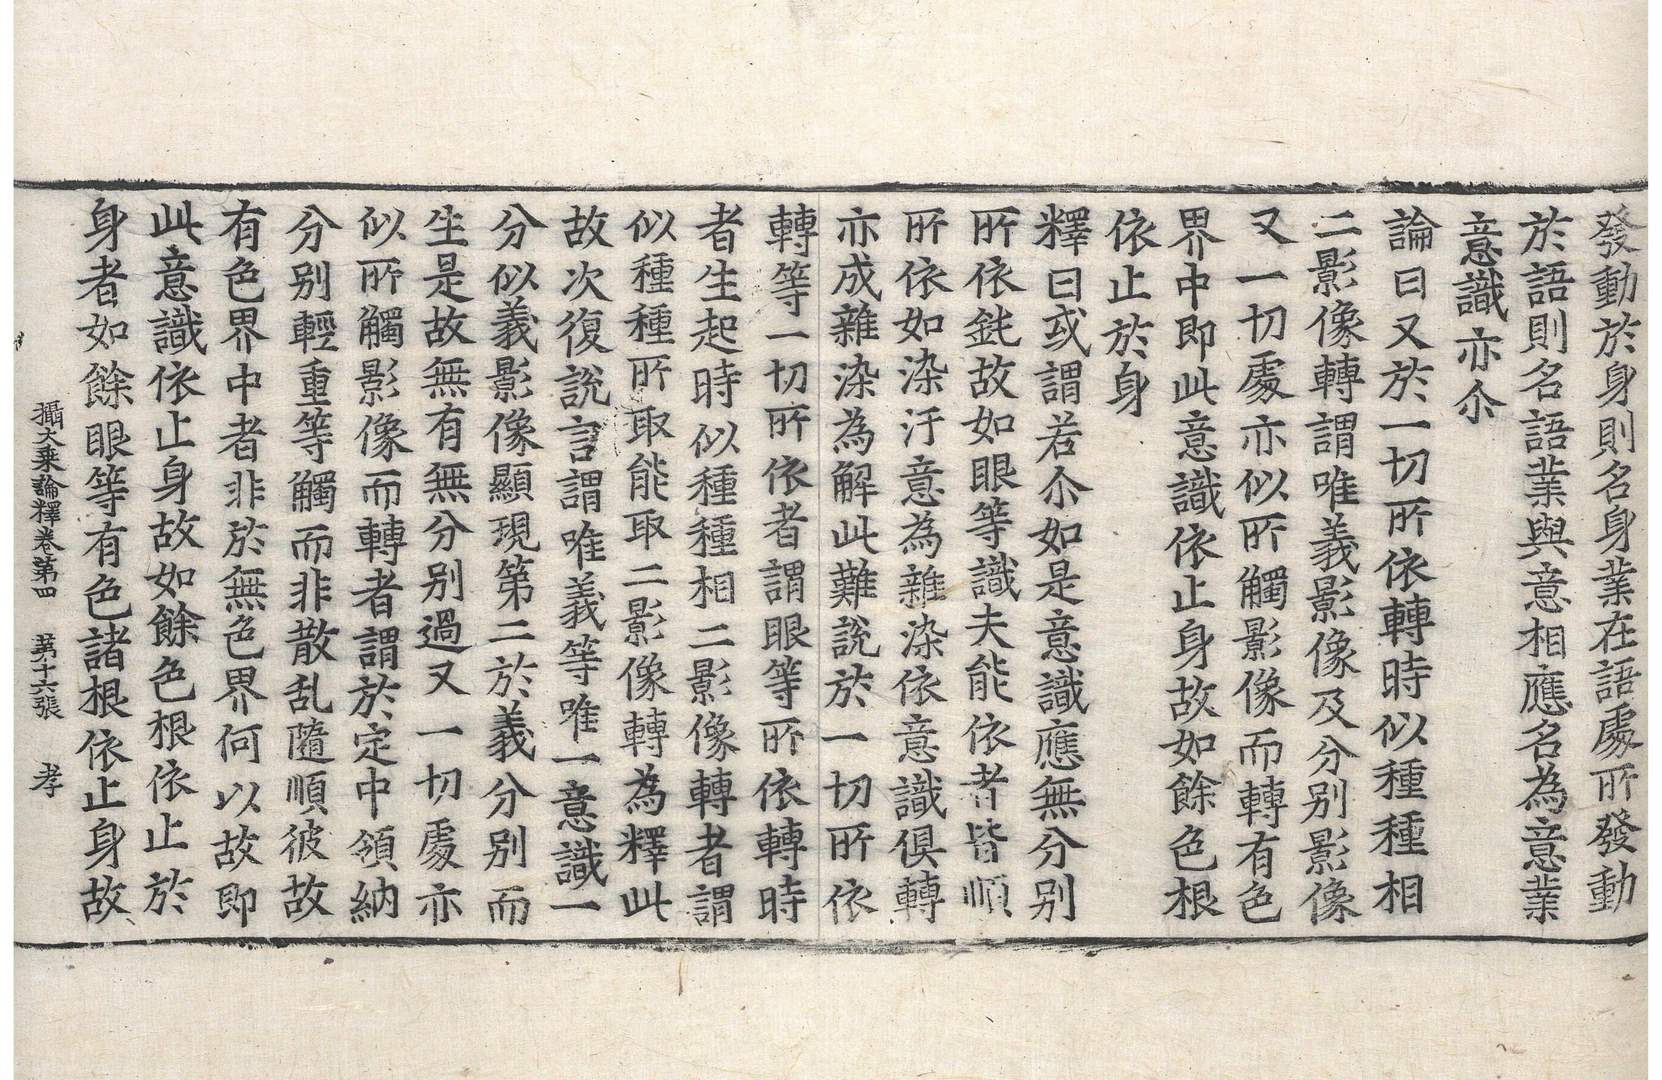 發動於身則名身業在語處所發動
於語則名語業與意相應名為意業
意識亦尒
論曰又於一切所依轉時似種種相
二影像轉謂唯義影像及分別影像
又一切處亦似所觸影像而轉有色
界中即此意識依止身故如餘色根
依止於身
釋曰或謂若尒如是意識應無分別
所依鈍故如眼等識夫能依者皆順
所依如染汙意為雜染依意識俱轉
亦成雜染為解此難說於一切所依
轉等一切所依者謂眼等所依轉時
者生起時似種種相二影像轉者謂
似種種所取能取二影像轉為釋此
故次復說言謂唯義等唯一意識一
分似義影像顯現第二於義分別而
生是故無有無分別過又一切處亦
似所觸影像而轉者謂於定中領納
分別輕重等觸而非散乱隨順彼故
有色界中者非於無色界何以故即
此意識依止身故如餘色根依止於
身者如餘眼等有色諸根依止身故
攝大乘論釋卷第四　第十六張　孝